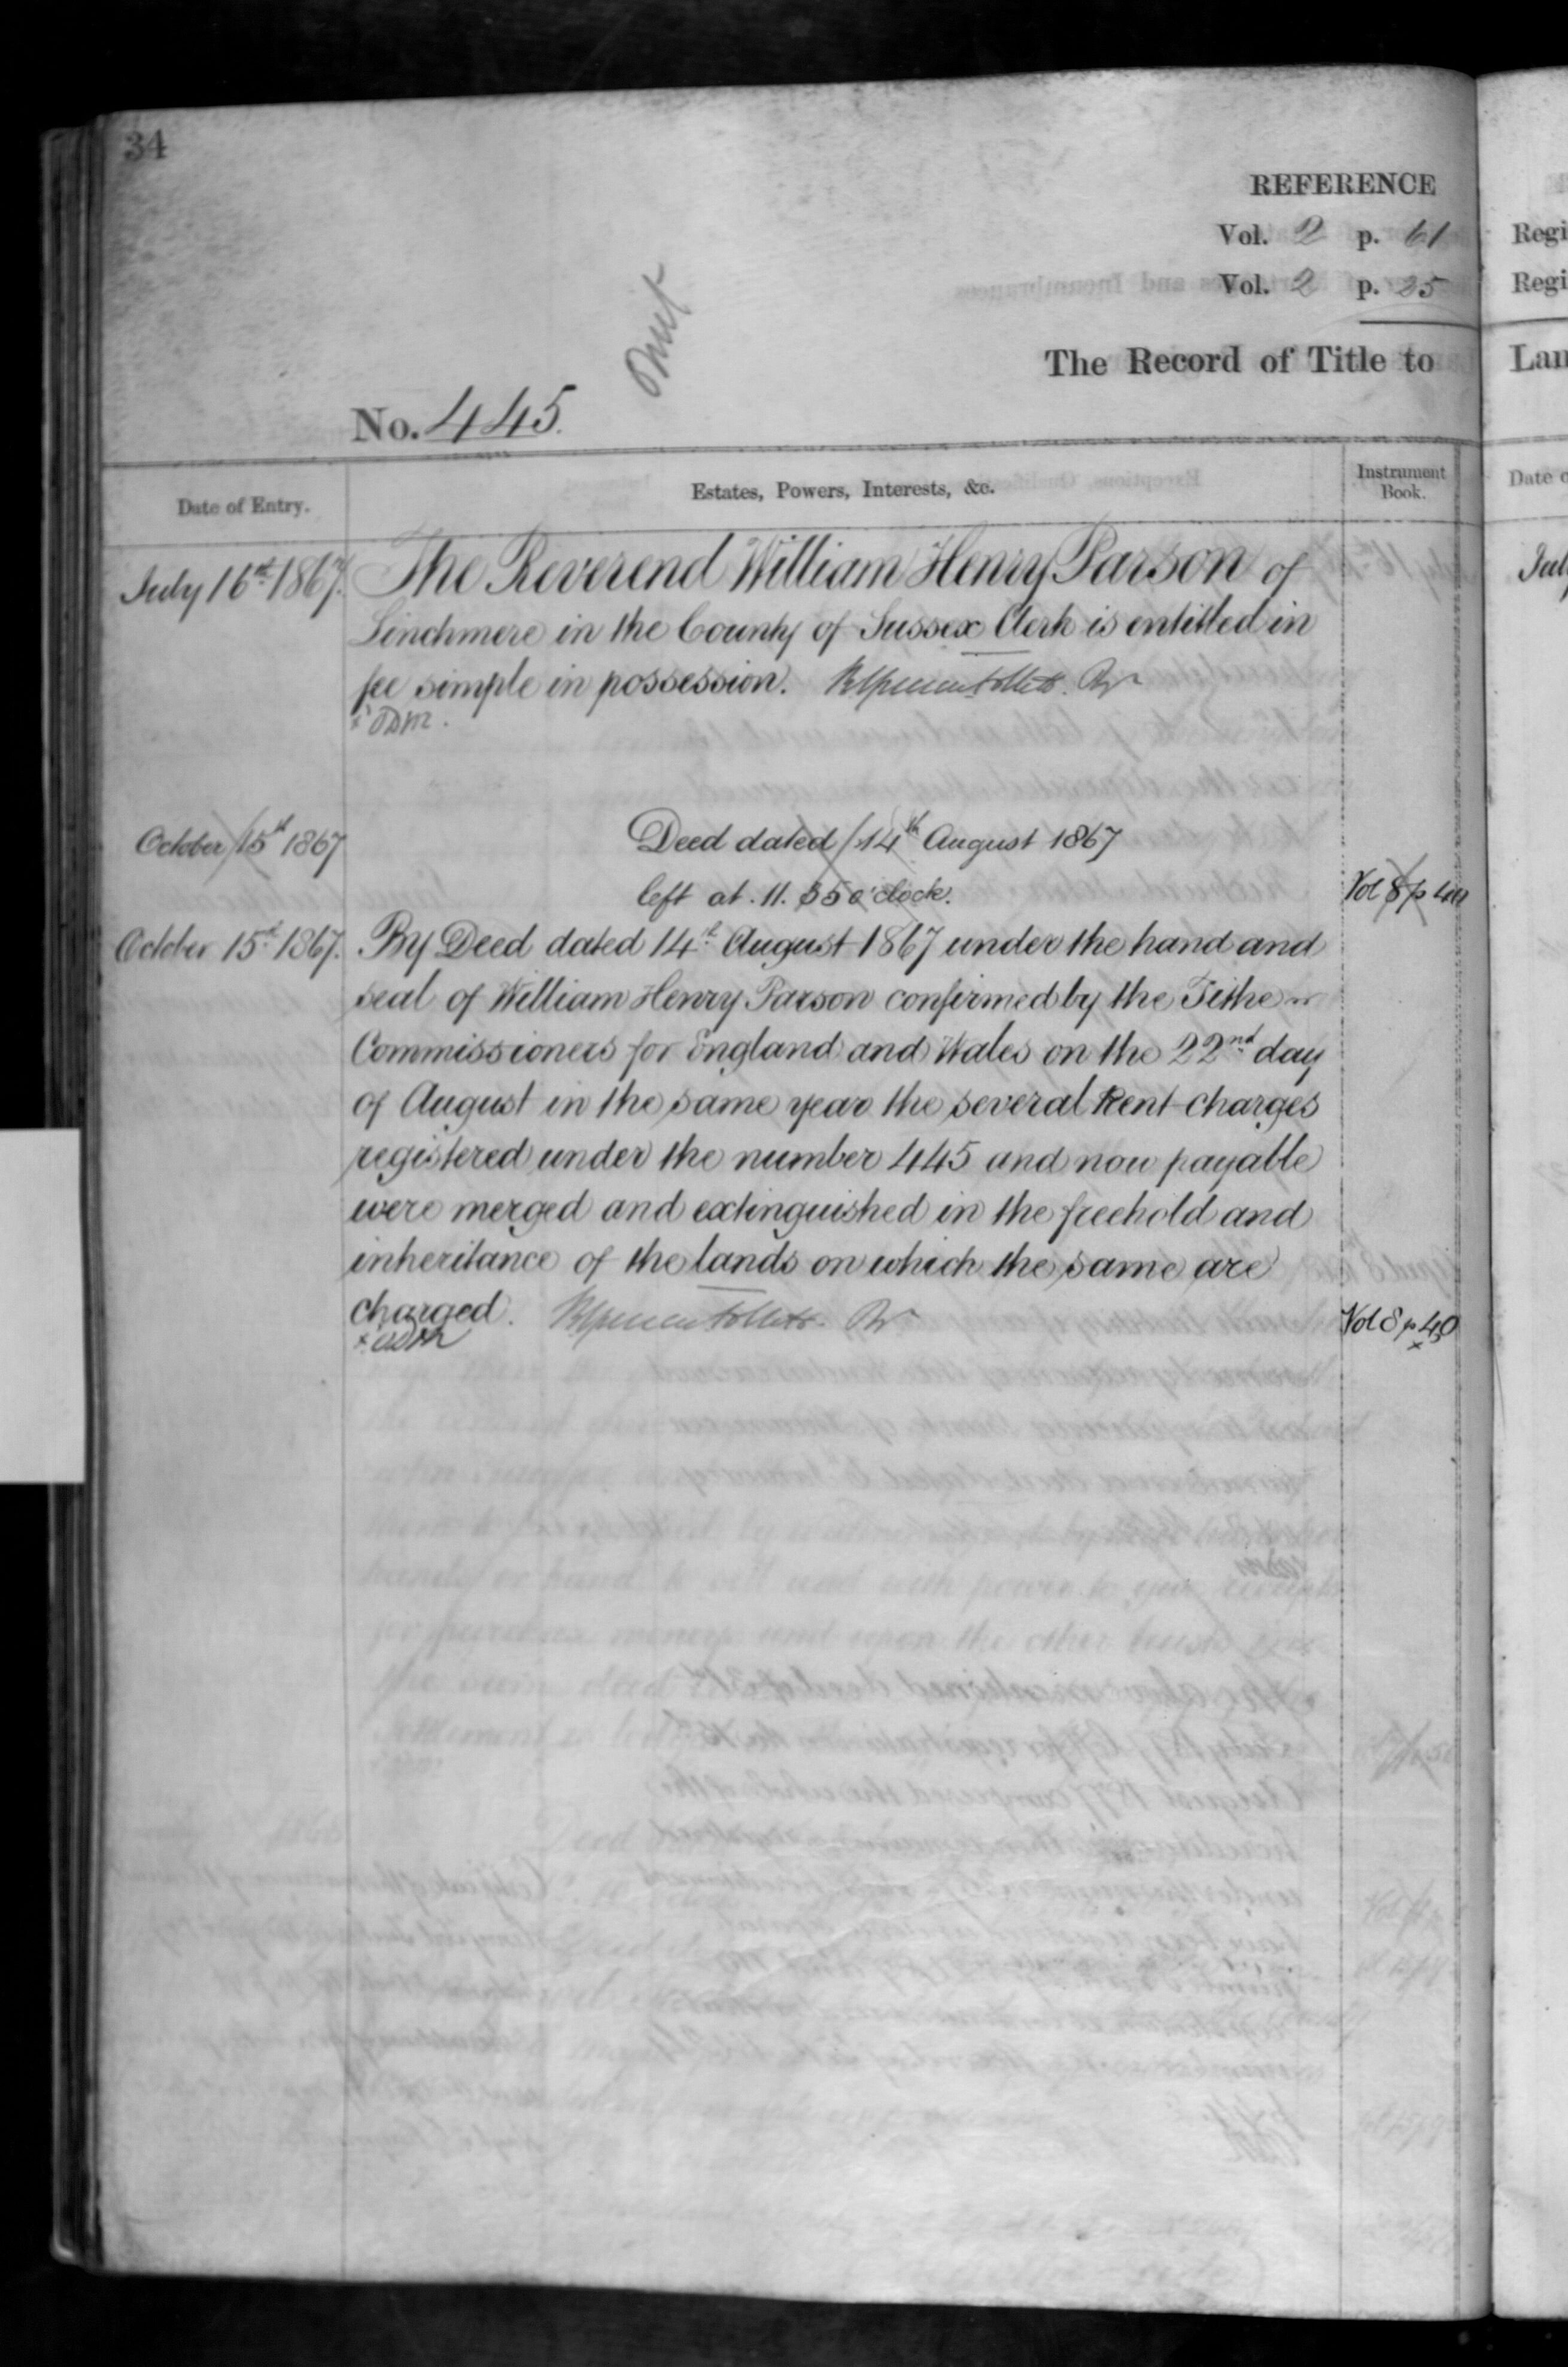 34
REFERENCE
Vol. 2 p. 61
Vol. 2 p. 25
The Record of Title to
Omit
No. 445.
Date of Entry.
Estates, Powers, Interests, &c.
Instrument Book.
July 16th 1867. The Reverend William Henry Parson of
Linchmere in the County of Sussex Clerk is entitled in
fee simple in possession.
October 15th 1867 Deed dated 14th August 1867
left at 11.55 o'clock. Vol 8 p 40
October 15th 1867. By Deed dated 14th August 1867 under the hand and
seal of William Henry Parson confirmed by the Tithe
Commissioners for England and Wales on the 22nd day
of August in the same year the several Rent charges
registered under the number 445 and now payable
were merged and extinguished in the freehold and
inheritance of the lands on which the same are
charged. Vol 8 p 40
Regi
Regi
Lan
Date o
Jul